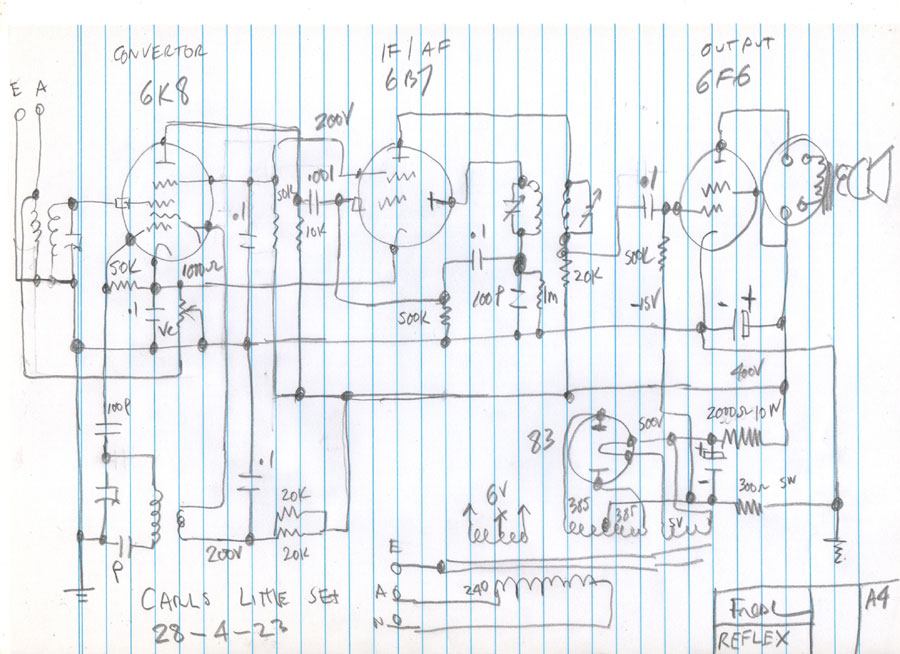 CONVERTOR
6K8
IF/AF
6B7
OUTPUT
6F6
E A
200V
.001
50K
10K
.1
.1
50K
1000Ω
.1
Vc
.1
100P
1m
500K
20K
.1
500K
-15V
400V
100P
83
500V
2000Ω 10W
+
-
300Ω 5W
385
385
5V
6V
.1
20K
20K
200V
P
E
A
N
240
CARLLS LITTLE SET
28-4-23
REFLEX
A4